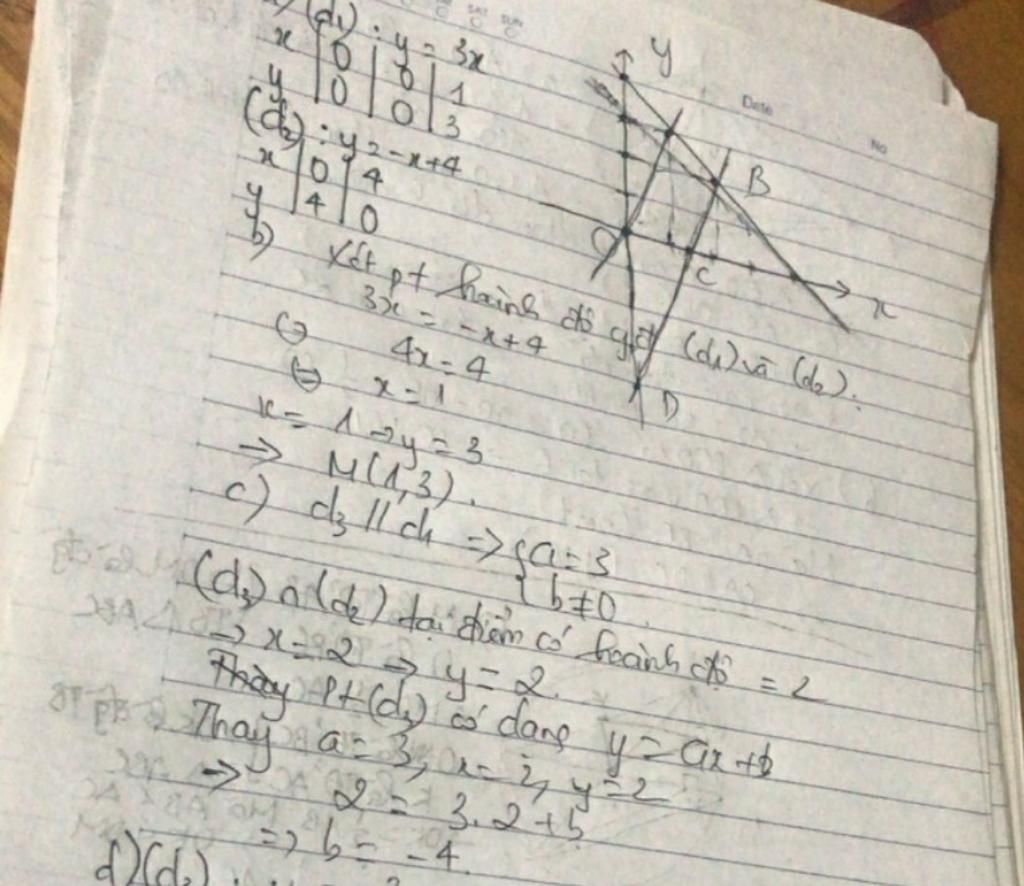 (d₁) : y = 3x
x | 0 | 0 | 1
y | 0 | 0 | 3
(d₂) : y = -x+4
x | 0 | 4
y | 4 | 0
b) Xét pt hoành độ gđ (d₁) và (d₂):
3x = -x+4
(=) 4x = 4
(=) x = 1
x = 1 => y = 3
=> M(1,3).
c) d₃ // d₁ => { a = 3
{ b ≠ 0
(d₃) ∩ (d₂) tại điểm có hoành độ = 2
=> x = 2 => y = 2.
pt (d₃) có dạng y = ax + b
Thay a = 3, x = 2, y = 2
=> 2 = 3.2 + b
=> b = -4.
d) (d₃) :
y
B
O
C
x
D
SAT
SUN
Date
No